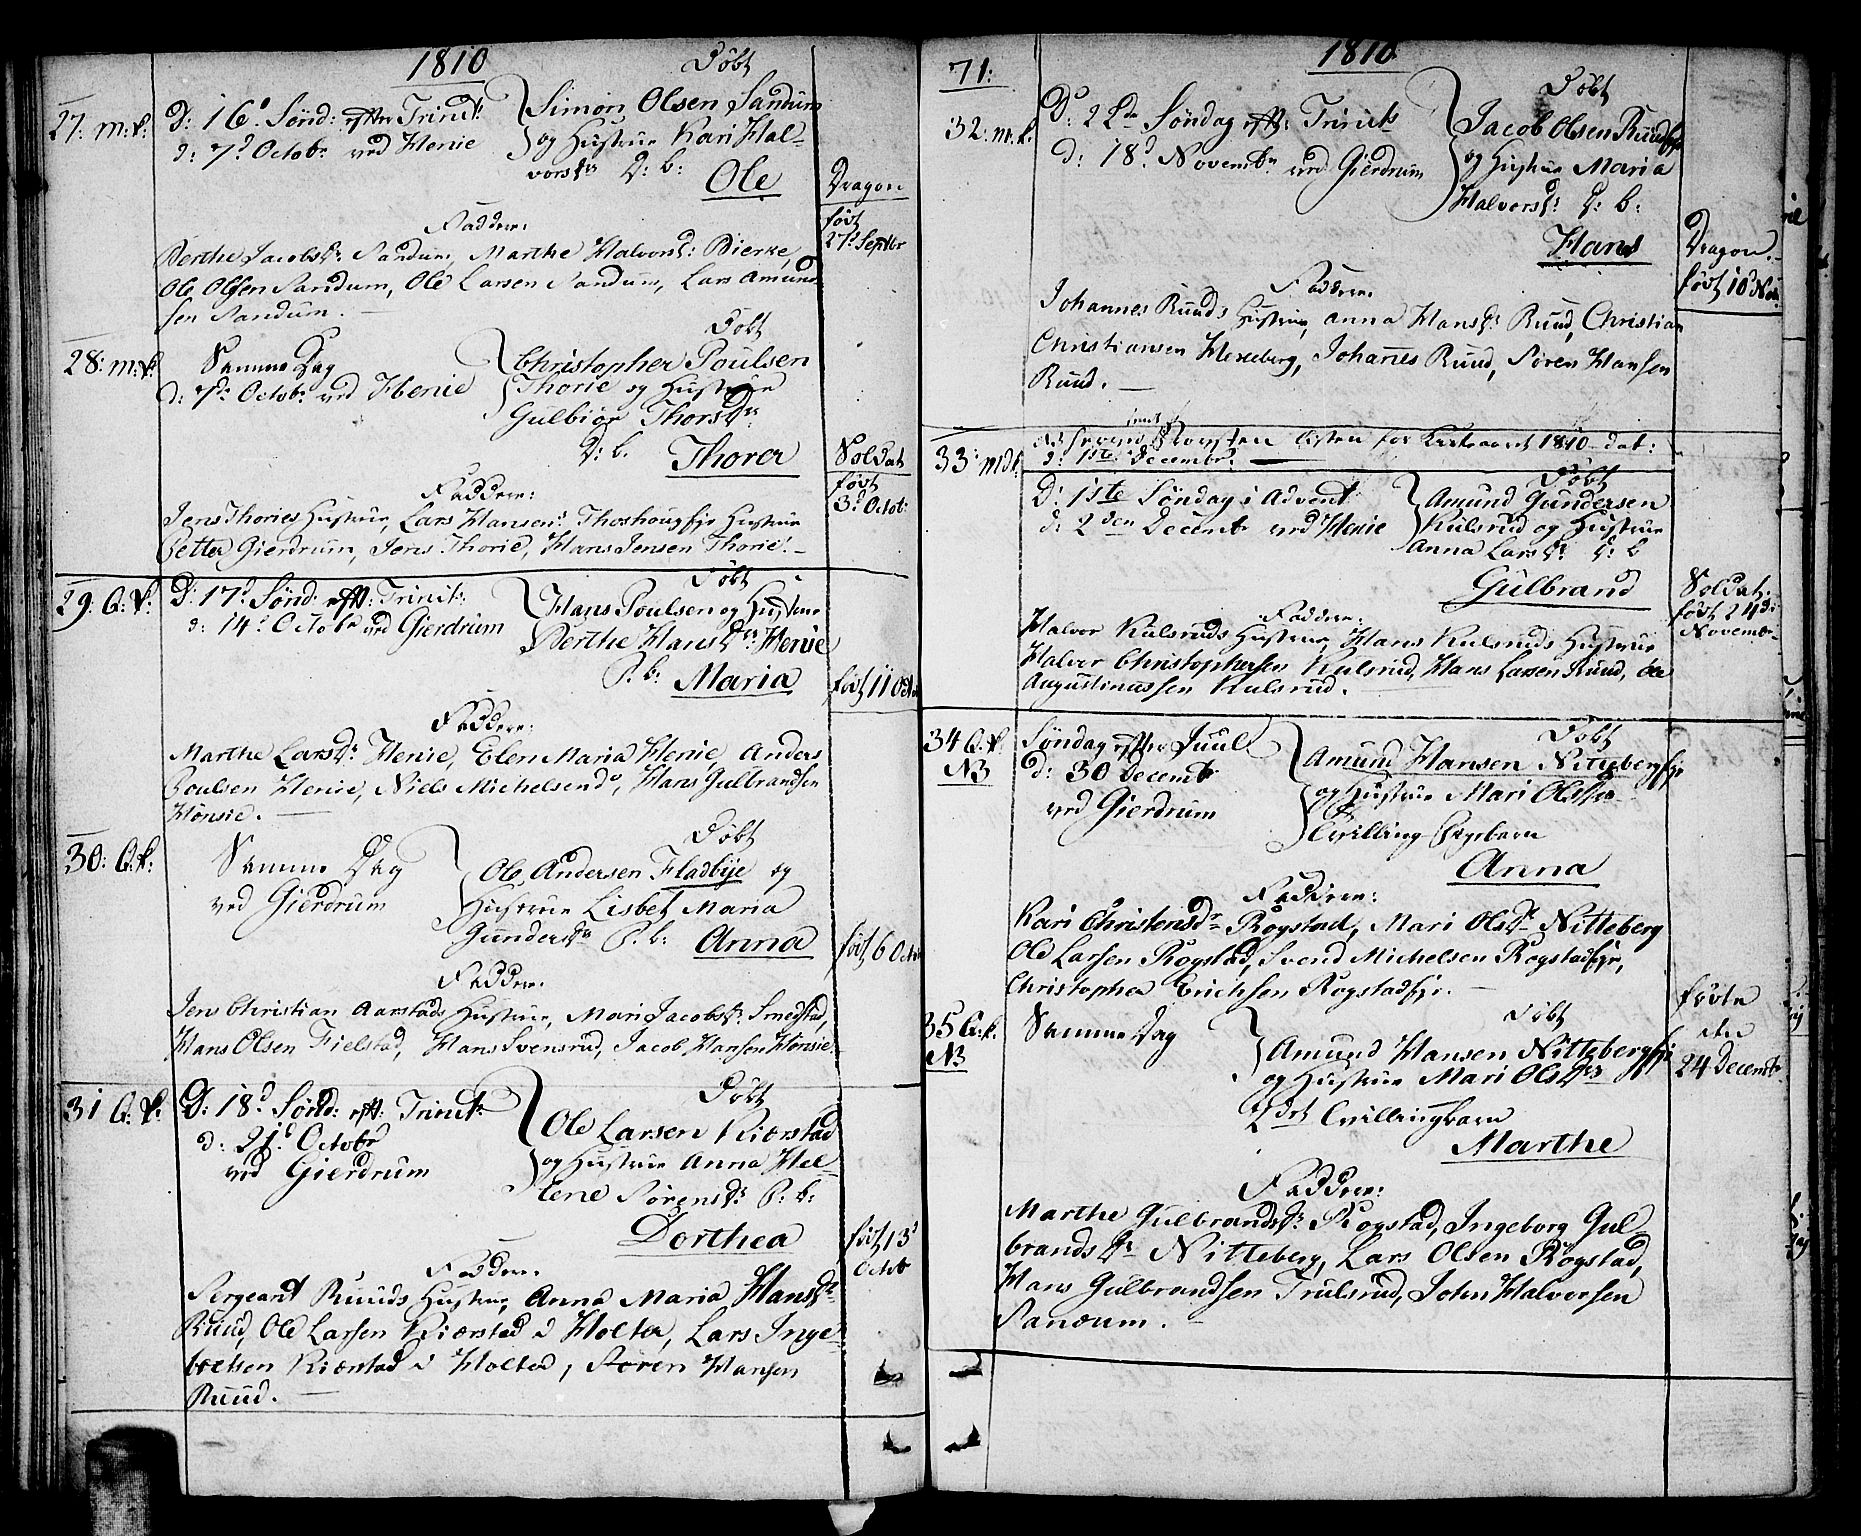 1810
27: m: k:
D: 16d Sønd: efter Trinit:
d: 7d Octobr ved Henie
Døbt
Simon Olsen Sandum
og Hustrue Kari Hal-
vorsdr D: b:
Ole
Dragon
født
27d Septbr
Faddere:
Berthe Jacobsdr Sandum, Marthe Halvorsd: Bierke,
Ole Olsen Sandum, Ole Larsen Sandum, Lars Amund-
sen Sandum. —
28: m: k:
Samme Dag
d: 7de Octobr ved Henie
Døbt
Christopher Poulsen
Thorie og Hustrue
Gulbiør Thorsdr
D: b.
Thorer
Soldat
født
3d Octob:
Faddere:
Jens Thories Hustrue, Lars Hansens Hustrue
Petter Gierdrum, Jens Thorie, Hans Jensen Thorie. —
29: Q: K:
D: 17d Sønd: eftr: Trinit:
d: 14d Octobr ved Gierdrum
Døbt
Hans Poulsen og Hustrue
Berthe Hansdr Henie
P. b:
Maria
født 11 Octbr
Faddere:
Marthe Larsdr Henie, Elen Maria Henie, Anders
Poulsen Henie, Niels Michelsen do, Hans Gulbrandsen
Hønsie. —
30: Q: k:
Samme Dag
ved Gierdrum
Døbt
Ole Andersen Fladbye og
Hustrue Lisbet Maria
Gundersdr P. b:
Anna
født 6 Octbr
Faddere:
Jens Christian Aarstads Hustrue, Mari Jacobsdr Smedstad,
Hans Olsen Fielstad, Hans Svensrud, Jacob Hansen Hønsie.
31 Q: K:
D: 18d Sønd: eftr: Trinit:
d: 21d Octobr
ved Gierdrum
Døbt
Ole Larsen Kiærstad
og Hustrue Anna Hel-
lene Sørensdr P: b:
Dorthea
født 13d
Octob
Faddere:
Sergeant Ruuds Hustrue, Anna Maria Hansdr
Ruud, Ole Larsen Kiærstad i Holter, Lars Inge-
bretsen Kiærstad i Holter, Søren Hansen
Ruud. —
71:
1810
32: m: k:
D: 22de Søndag eftr: Trinit:
d: 18d Novembr ved Gierdrum
Døbt
Jacob Olsen Ruudeje
og Hustrue Maria
Halversdr D: b:
Hans
Dragon.
født 10d Nov:
Faddere:
Johannes Ruuds Hustrue, Anna Hansdr Ruud, Christian
Christiansen Hexeberg, Johannes Ruud, Søren Hansen
Ruud. —
33: m: k:
listen for 1810 dat:
d: 1ste Decembr. —
D: 1ste Søndag i Advent
d: 2den Decembr ved Henie
Døbt
Amund Gundersen
Kulsrud og Hustrue
Anna Larsdr D: b
Gulbrand
Soldat.
født 24d:
Novembr
Faddere:
Halver Kulsruds Hustrue, Hans Kulsruds Hustrue
Halver Christophersen Kulsrud, Hans Larsen Ruud, Ole
Augustinussen Kulsrud.
34 Q. k.
NB
Søndag efter Juul
d: 30 Decembr
ved Gierdrum
Døbt
Amund Hansen Nittebergeje
og Hustrue Mari Olsdr
Tvilling Pigebarn
Anna
Faddere:
Kari Christensdr Rogstad, Mari Olsdr Nitteberg
Ole Larsen Rogstad, Svend Michelsen Rogstadeje,
Christopher Erichsen Rogstadeje. —
35 Q. k.
NB
Samme Dag
Døbt
Amund Hansen Nittebergeje
og Hustrue Mari Olsdrs
2det Tvillingbarn
Marthe
fødte
den
24 Decembr
Faddere:
Marthe Gulbrandsdr Rogstad, Ingeborg Gul-
brandsdr Nitteberg, Lars Olsen Rogstad,
Hans Gulbrandsen Trulsrud, John Halversen
Sandum. —